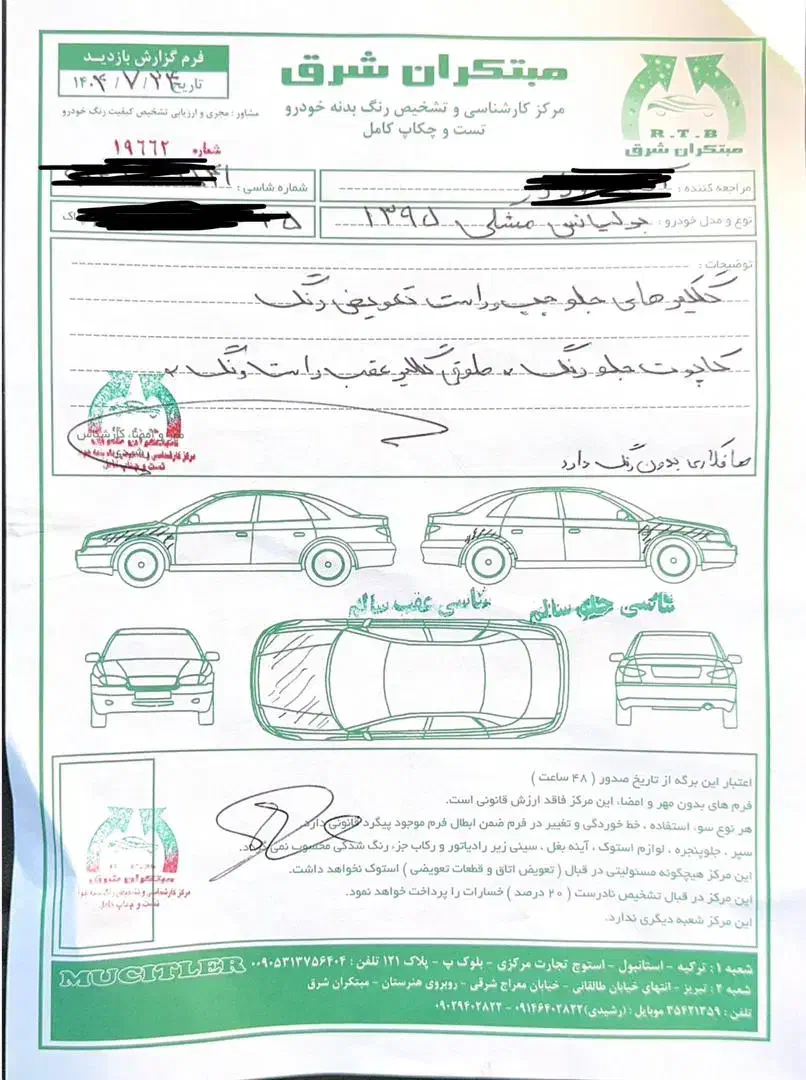 فرم گزارش بازدید
تاریخ ۱۴۰۴/۷/۲۴
مشاور : مجری و ارزیابی تشخیص کیفیت رنگ خودرو
شماره ۱۹۶۶۲
مبتکران شرق
مرکز کارشناسی و تشخیص رنگ بدنه خودرو
تست و چکاپ کامل
R.T.B
مبتکران شرق
مراجعه کننده :
شماره شاسی :
نوع و مدل خودرو : برلیانس مشکی ۱۳۹۵
توضیحات :
گلگیر های جلو چپ و راست تعویض رنگ
کاپوت جلو رنگ
گلگیر عقب راست رنگ
مهر و امضاء کارشناس
صافکاری بدون رنگ دارد
شاسی عقب سالم
شاسی جلو سالم
اعتبار این برگه از تاریخ صدور ( ۴۸ ساعت )
فرم های بدون مهر و امضاء، این مرکز فاقد ارزش قانونی است.
هر نوع سوء استفاده ، خط خوردگی و تغییر در فرم ضمن ابطال فرم موجود پیگرد قانونی دارد.
سپر ، جلوپنجره ، لوازم استوک ، آینه بغل ، سینی زیر رادیاتور و رکاب جز، رنگ شدگی محسوب نمی گردد.
این مرکز هیچگونه مسئولیتی در قبال ( تعویض اتاق و قطعات تعویضی ) استوک نخواهد داشت.
این مرکز در قبال تشخیص نادرست ( ۲۰ درصد ) خسارات را پرداخت خواهد نمود.
این مرکز شعبه دیگری ندارد.
مبتکران شرق
مرکز کارشناسی و تشخیص رنگ بدنه خودرو
تست و چکاپ کامل
MUCITLER
شعبه ۱ : ترکیه - استانبول - استوچ تجارت مرکزی - بلوک ب - پلاک ۱۲۱ تلفن : ۰۰۹۰۵۳۱۳۷۵۶۴۰۴
شعبه ۲ : تبریز - انتهای خیابان طالقانی - خیابان معراج شرقی - روبروی هنرستان - مبتکران شرق
تلفن : ۳۵۴۲۱۳۵۹ موبایل : (رشیدی) ۰۹۱۴۶۴۰۲۸۲۲ - ۰۹۰۲۹۴۰۲۸۲۲